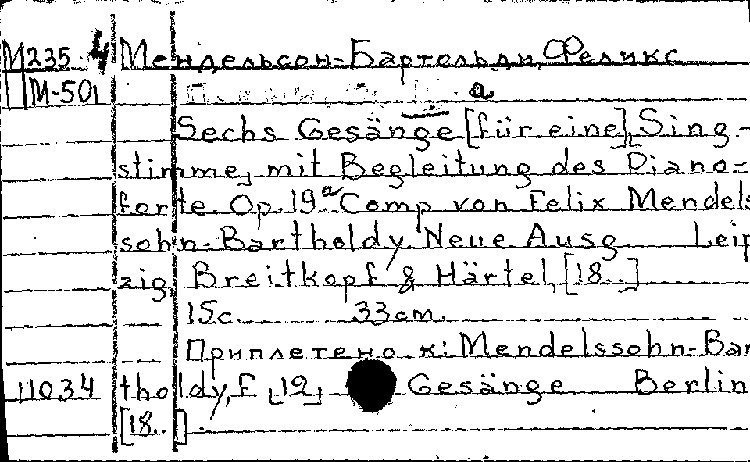 М235 4 Мендельсон-Бартольди, Феликс
М-501
a
Sechs Gesänge [für eine] Sing-
stimme, mit Begleitung des Piano-
forte. Op. 19a Comp. von Felix Mendels
sohn-Bartholdy. Neue Ausg. Leip
zig, Breitkopf & Härtel, [18..]
15c. 33cm.
Приплетено к: Mendelssohn-Bar
11034 tholdy, F. [12] Gesänge Berlin
[18..]